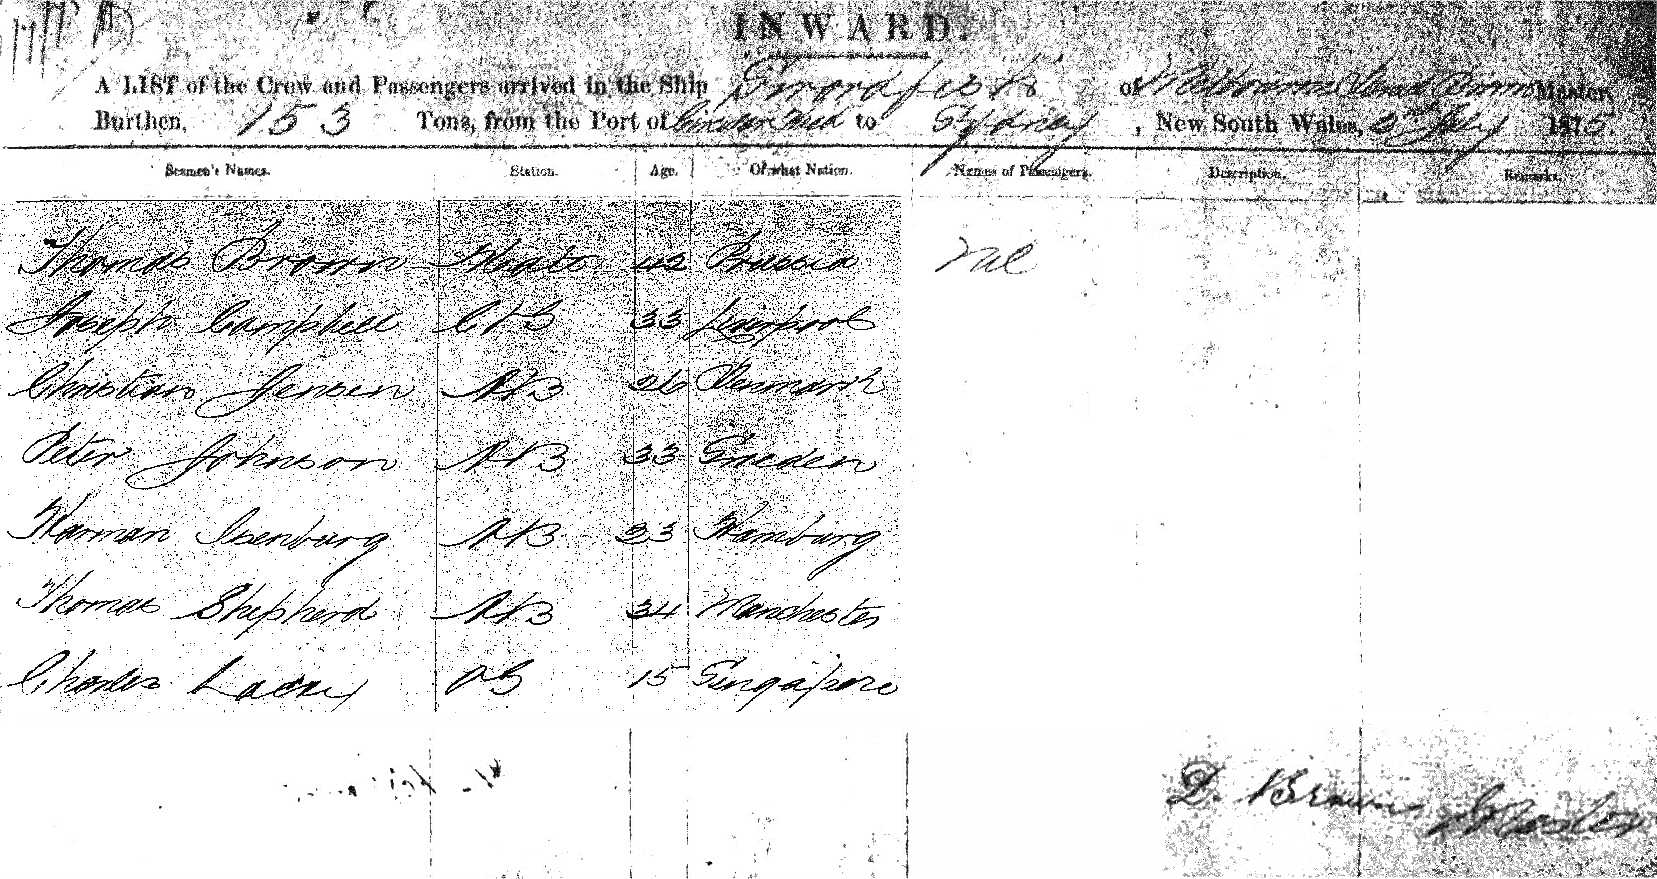 INWARD.
A LIST of the Crew and Passengers arrived in the Ship Swordfish of Melbourne Brown Master,
Burthen, 153 Tons, from the Port of to Sydney, New South Wales, 3rd July 1875.
Seamen's Names. Station. Age. Of what Nation. Names of Passengers. Description. Remarks.
Thomas Brown Mate 42 Prussia Nil
Joseph Campbell C & S 33 Liverpool
Christian Jensen AB 26 Denmark
Peter Johnson AB 33 Sweden
Harman Isenburg AB 23 Hamburg
Thomas Shepherd AB 34 Manchester
Charles Lacey OS 15 Singapore
D. Brown Master